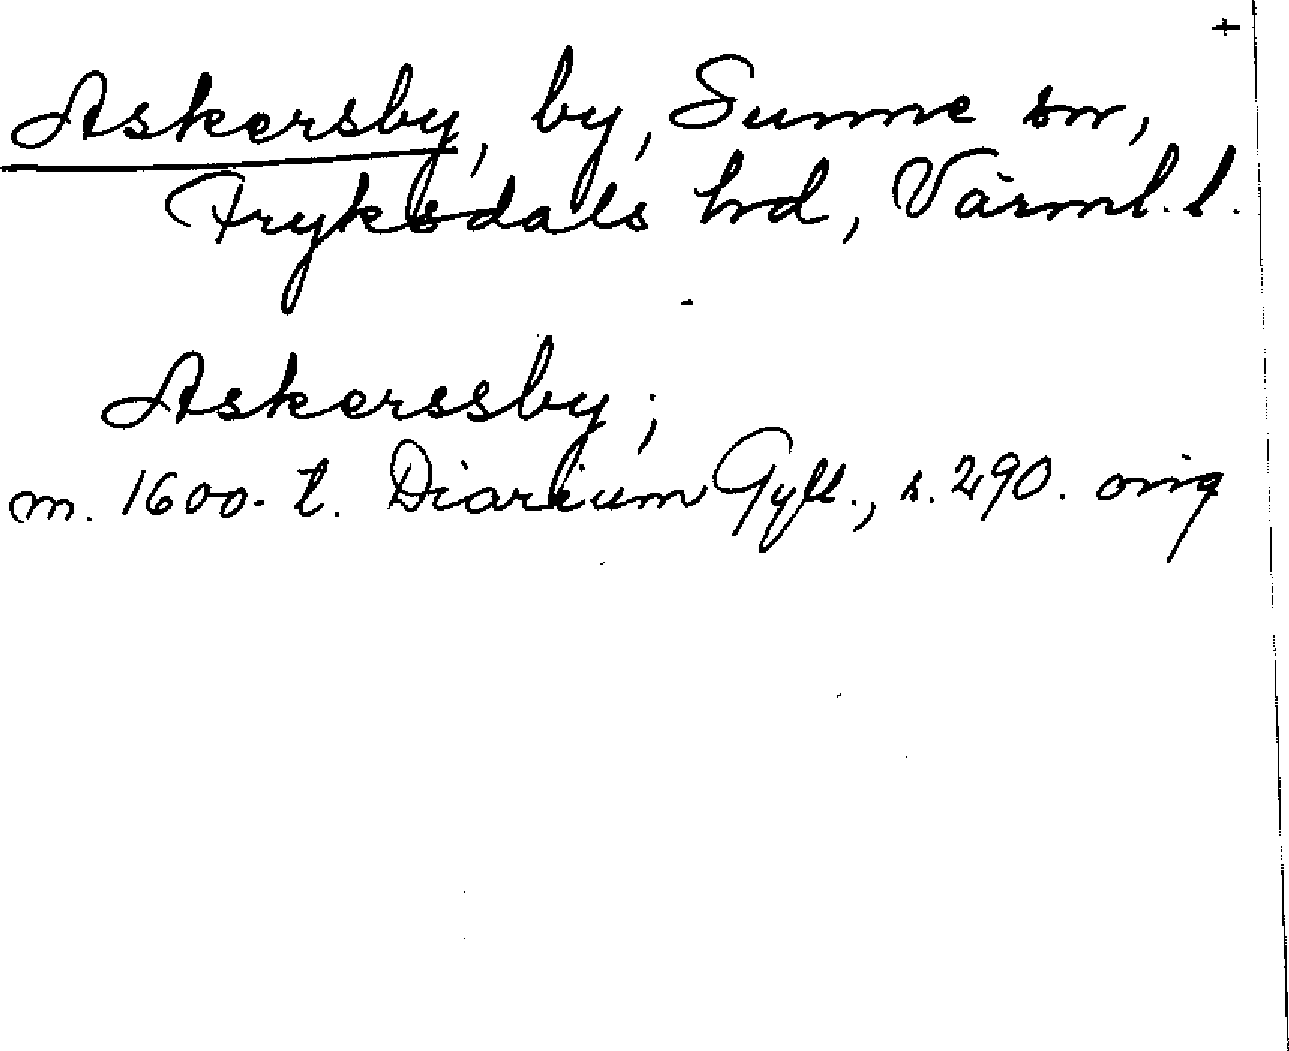 +
Askersby, by, Sunne sn,
Fryksdals hd, Värml. l.
Askerssby;
m. 1600-t. Diarium Gyll., s. 290. orig